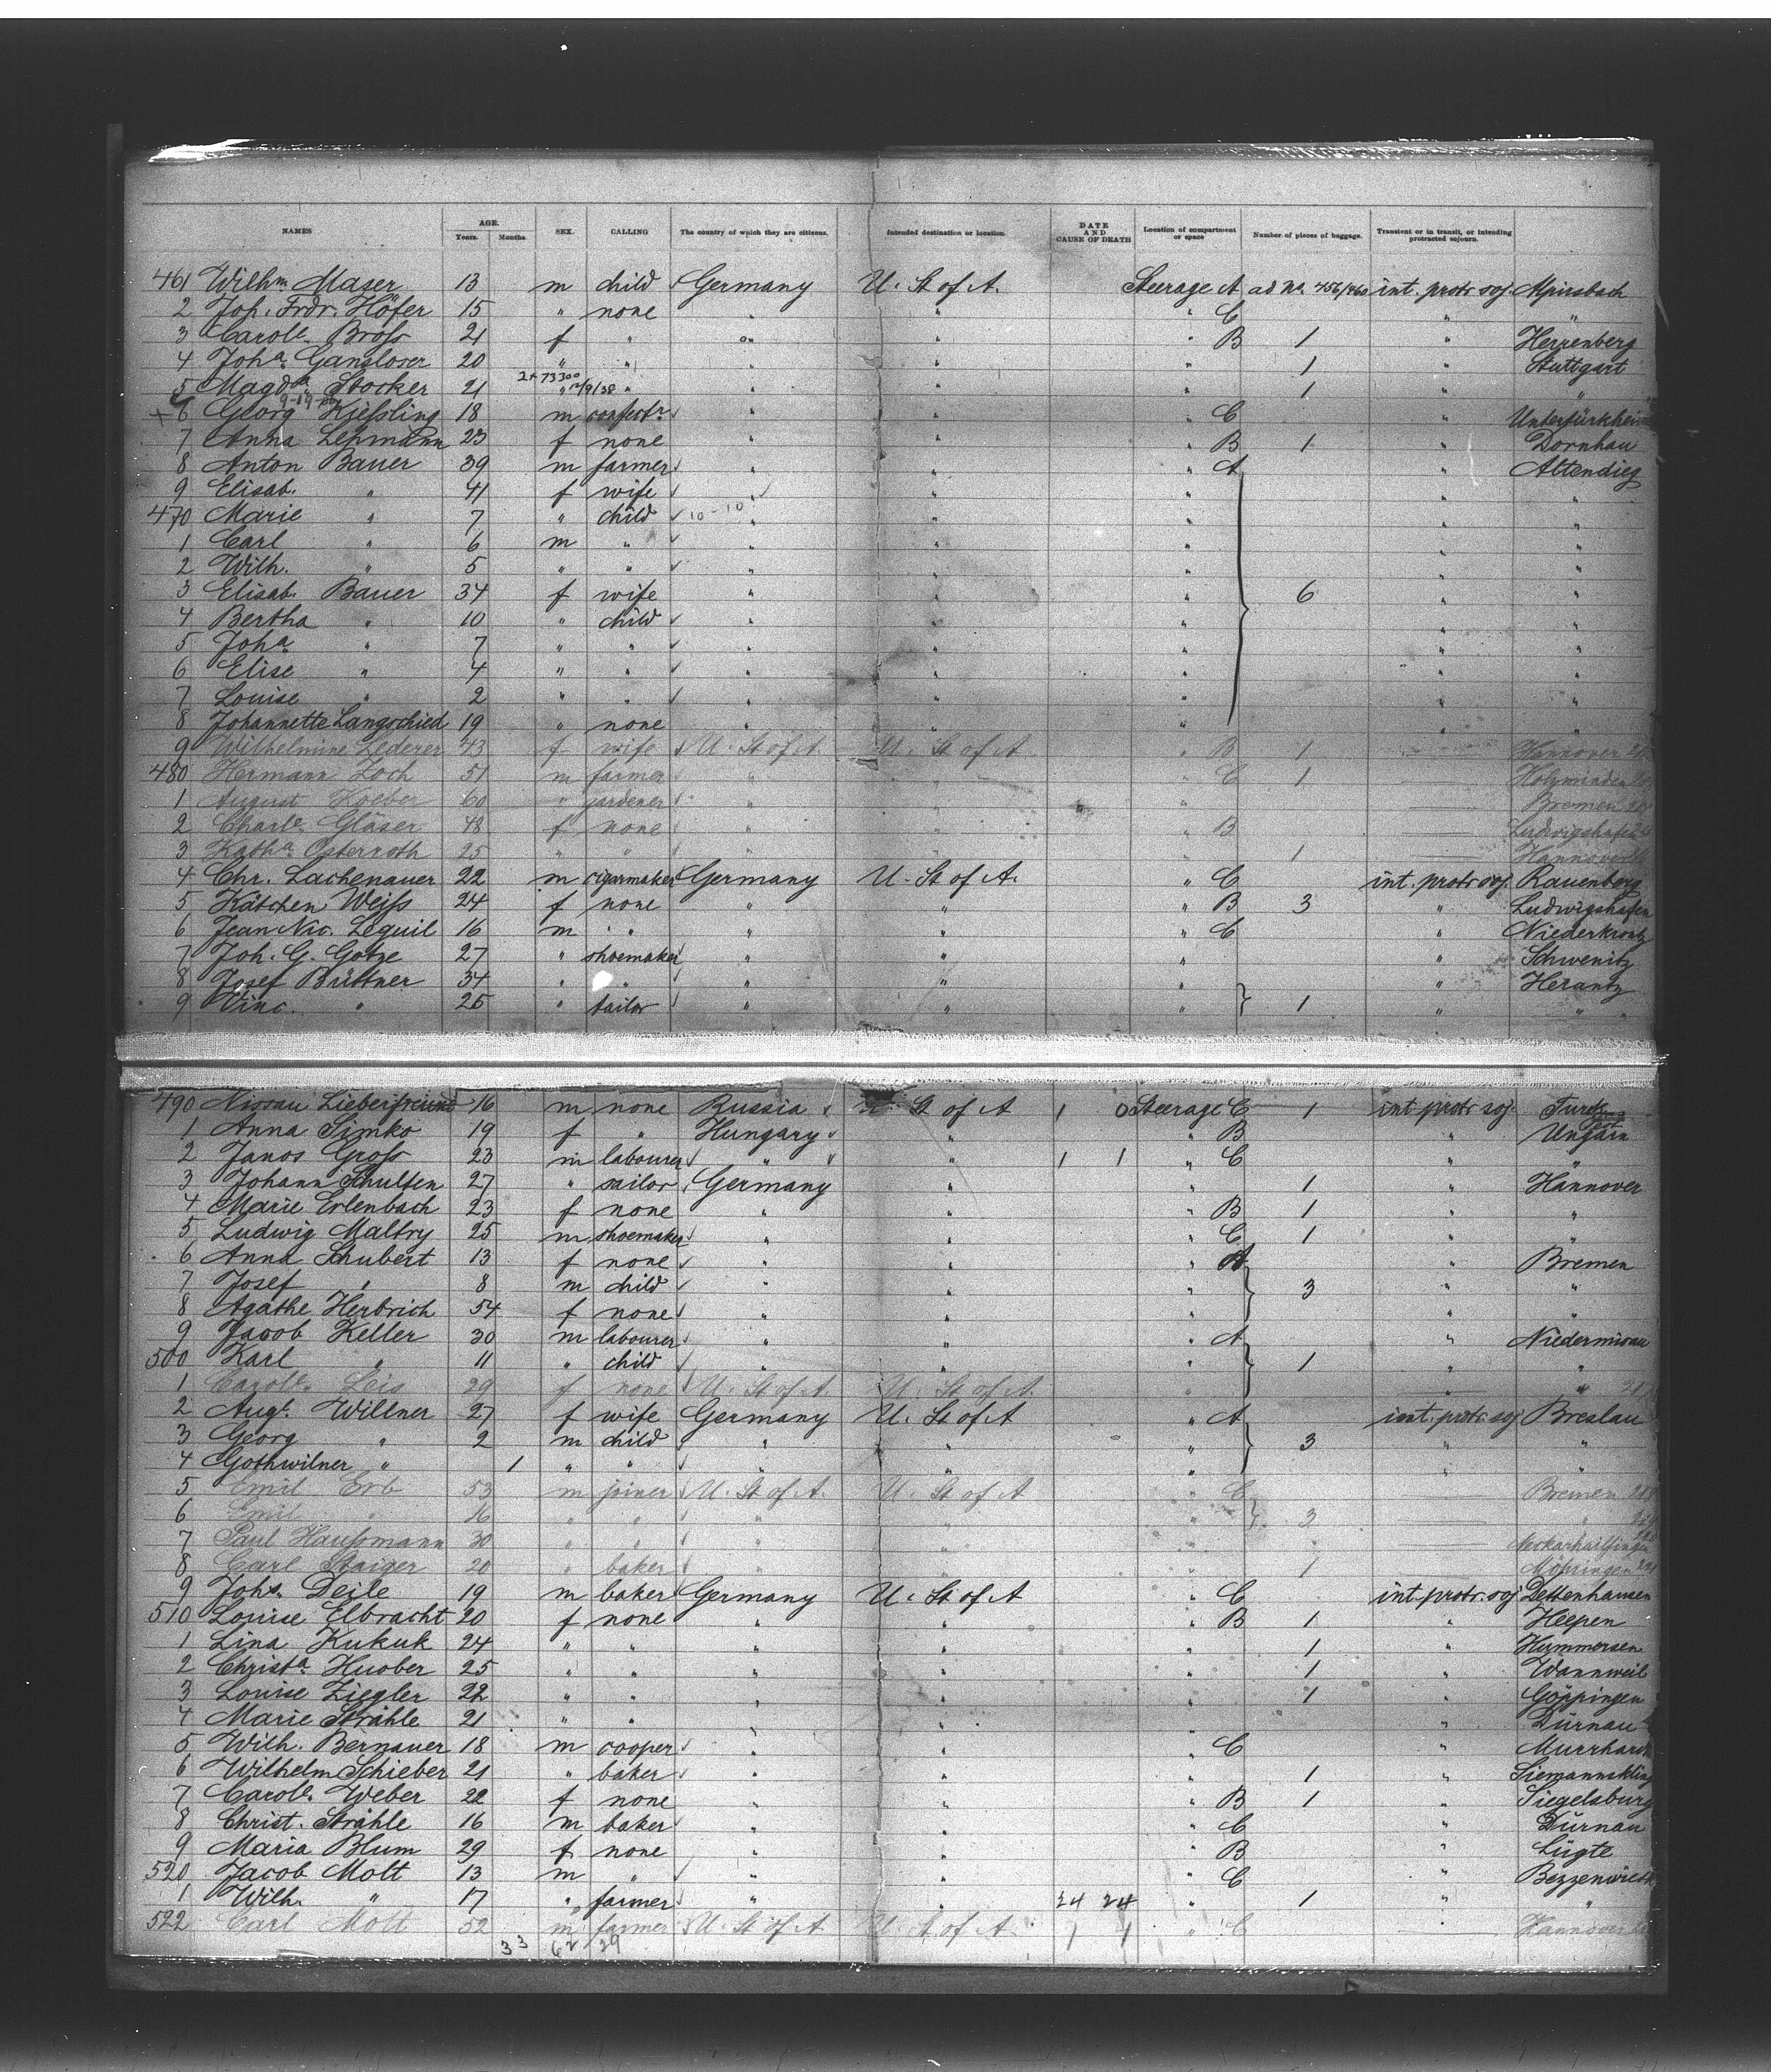 NAMES AGE. Years. Months. SEX. CALLING The country of which they are citizens. Intended destination or location. DATE AND CAUSE OF DEATH Location of compartment or space Number of pieces of baggage. Transient or in transit, or intending protracted sojourn.
461 Wilhm. Maser 13 m child Germany U. St of A. Steerage A ad No. 456/460 int. protr soj.
2 Joh. Frdr. Höfer 15 " none " " " C " "
3 Carole. Bross 21 f " " " " B 1 " Herrenberg
4 Joha. Gansloser 20 " " " " " 1 " Stuttgart
2+73300
5 Magda. Stocker 21 " 12/9/38 " " " " 1 " "
+ 6 Georg Kiessling 18 m confectr. " " " C " Untertürkheim
7 Anna Lehmann 23 f none " " " B 1 " Dornhau
8 Anton Bauer 39 m farmer " " " A " Altendieg
9 Elisab. " 41 f wife " " " " "
470 Marie " 7 " child 10-10 " " " " "
1 Carl " 6 m " " " " " "
2 Wilh. " 5 " " " " " " "
3 Elisab. Bauer 34 f wife " " " 6 " "
4 Bertha " 10 " child " " " " "
5 Joha. " 7 " " " " " " "
6 Elise " 4 " " " " " " "
7 Louise " 2 " " " " " " "
8 Johannette Langschied 19 " none " " " " "
9 Wilhelmine Lederer 43 f wife U. St of A. U. St of A " B 1 Hannover
480 Hermann Zoch 51 m farmer " " " C 1 Holzminden
1 August Koeber 60 " gardener " " " Bremen
2 Charle. Gläser 48 f none " " " B Ludwigshafen
3 Katha. Osterroth 25 " " " " " 1 Hannover
4 Chr. Lachenauer 22 m cigarmaker Germany U. St of A. " C int. protr soj. Rauenberg
5 Kätchen Weiss 24 f none " " " B 3 " Ludwigshafen
6 Jean Nic. Lequil 16 m " " " " C "
7 Joh. G. Gotze 27 " shoemaker " " " " Schwenitz
8 Josef Büttner 34 " " " " " " Herantz
9 Vinc. " 25 " tailor " " " 1 " "
490 Nissau Lieberfreund 16 m none Russia U. St of A 1 0 Steerage C 1 int protr soj.
1 Anna Simko 19 f " Hungary " " B " Ungarn
2 Janos Gross 23 m labourer " " 1 1 " C " "
3 Johann Schulsen 27 " sailor Germany " " 1 " Hannover
4 Marie Erlenbach 23 f none " " " B 1 " "
5 Ludwig Maltry 25 m shoemaker " " " C 1 " "
6 Anna Schubert 13 f none " " " A " Bremen
7 Josef " 8 m child " " " 3 " "
8 Agathe Herbrich 54 f none " " " " "
9 Jacob Keller 30 m labourer " " " A " Niedermisau
500 Karl " 11 " child " " " 1 " "
1 Carole. Leis 29 f none U. St of A. U. St of A. " "
2 Augt. Willner 27 f wife Germany U. St of A " A int. protr. soj Breslau
3 Georg " 2 m child " " " 3 " "
4 Gothwilner " 1 " " " " " " "
5 Emil Erb 53 m joiner U. St of A. U. St of A " C Bremen
6 Emil " 16 " " " " " 3 "
7 Paul Haussmann 30 " " " " "
8 Carl Staiger 20 " baker " " " 1 Möhringen
9 Johs. Deile 19 m baker Germany U. St of A " C int. protr. soj Dettenhausen
510 Louise Elbracht 20 f none " " " B 1 " Heepen
1 Lina Kukuk 24 " " " " " 1 " Hummersen
2 Christa. Huober 25 " " " " " 1 " Wannweil
3 Louise Ziegler 22 " " " " " 1 " Göppingen
4 Marie Strähle 21 " " " " " " Dürnau
5 Wilh. Bernauer 18 m cooper " " " C " Murrhardt
6 Wilhelm Schieber 21 " baker " " " 1 "
7 Carole. Weber 22 f none " " " B 1 " Siegelsburg
8 Christ. Strähle 16 m baker " " " C " Dürnau
9 Maria Blum 29 f none " " " B " Lügte
520 Jacob Molt 13 m " " " " C "
1 Wilh. " 17 " farmer " " 24 24 " 1 " "
522 Carl Molt 52 m farmer U. St of A. U. St of A. 1 1 " C Hannover
33 62 29